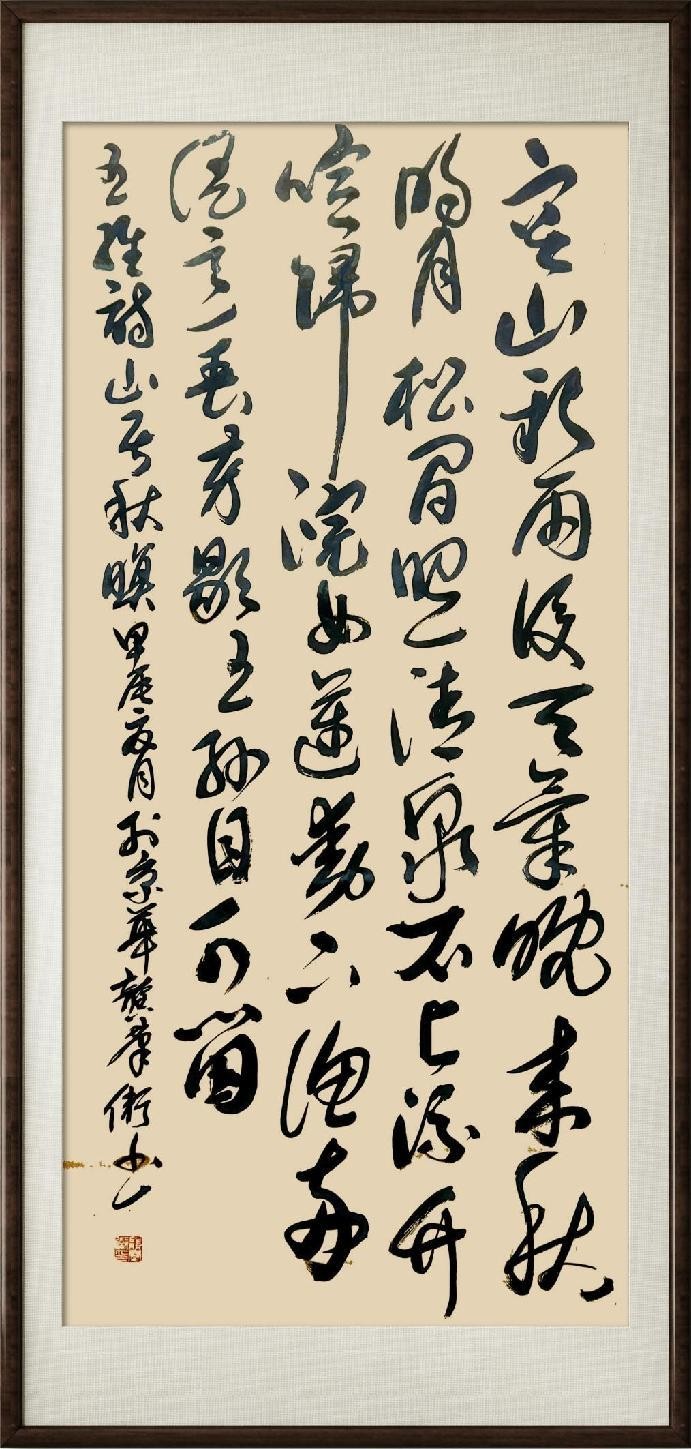 空山新雨後天氣晚来秋
明月松間照清泉石上流竹
喧歸浣女蓮動下漁舟
随意春芳歇王孫自可留
王維詩山居秋暝甲辰夏月於京華